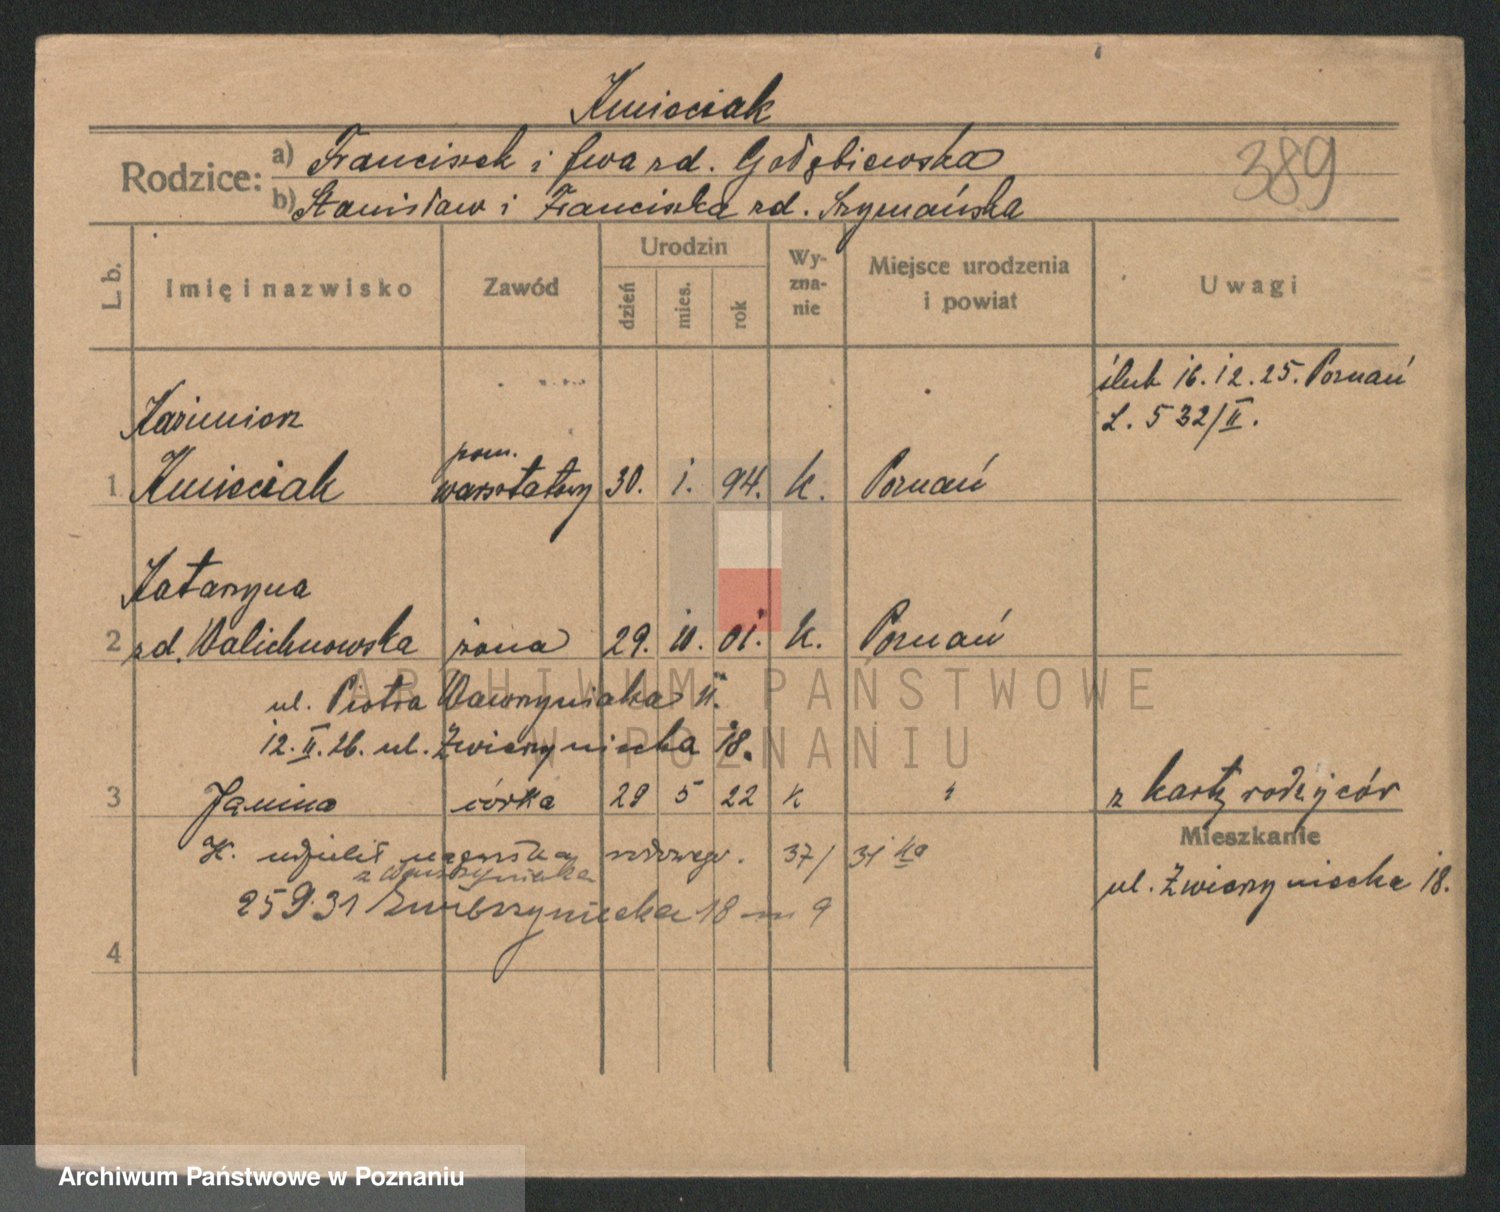 Kmieciak
389
Rodzice: a) Franciszek i Ewa zd. Gołębiewska
b) Stanisław i Franciszka zd. Szymańska
L. b. Imię i nazwisko Zawód Urodzin dzień mies. rok Wy-zna-nie Miejsce urodzenia i powiat Uwagi
ślub 16.12.25. Poznań
L. 532/II.
Kazimierz
1 Kmieciak pom. warsztatowy 30. 1. 94. k. Poznań
Katarzyna
2 zd. Walichnowska żona 29. 10. 01. k. Poznań
ul. Piotra Wawrzyniaka 11.
12.II.26. ul. Zwierzyniecka 18.
3 Janina córka 29 5 22 k " z karty rodziców
Mieszkanie
K. udzielił nazwiska rodowego. 37/31
z Wawrzyniaka
ul. Zwierzyniecka 18.
25 9 31 Zwierzyniecka 18 m 9
4
ARCHIWUM PAŃSTWOWE
W POZNANIU
Archiwum Państwowe w Poznaniu